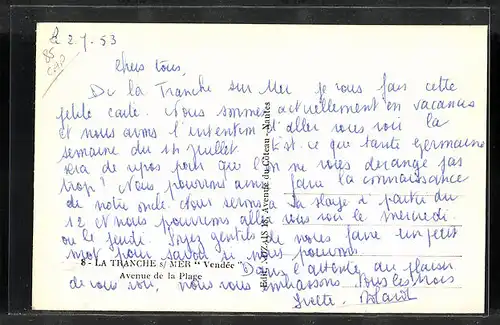 le 2-7-53
85
Chers tous,
De la Tranche sur Mer je vous fais cette
petite carte. Nous sommes actuellement en vacances
et nous avons l'intention d'aller vous voir la
semaine du 14 juillet. Est-ce que tante Germaine
sera de repos pour que ça ne vous dérange pas
trop? Nous pourrons ainsi faire la connaissance
de notre oncle. Nous serons à la plage à partir du
12 et nous pourrons aller vous voir le mercredi
ou le jeudi. Soyez gentils de nous faire un petit
mot pour savoir si nous pouvons
Dans l'attente du plaisir
de vous voir, nous vous embrassons Tous les trois
Yvette. Roland
8 - LA TRANCHE s/ MER " Vendée "
Avenue de la Plage
Avenue du Côteau - Nantes